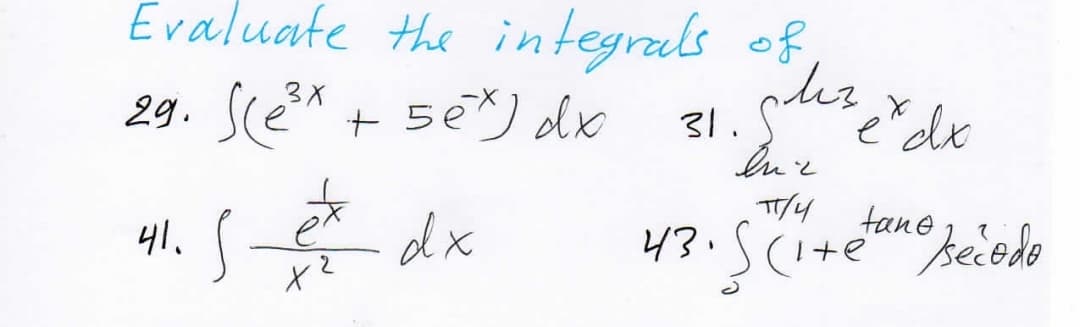 Evaluate the integrals of
29. ∫(e^{3x} + 5e^{-x}) dx 31. ∫_{ln 2}^{ln 3} e^x dx
41. ∫ e^{1/x}/x^2 dx 43. ∫_0^{π/4} (1+e^{tan θ}) sec^2 θ dθ